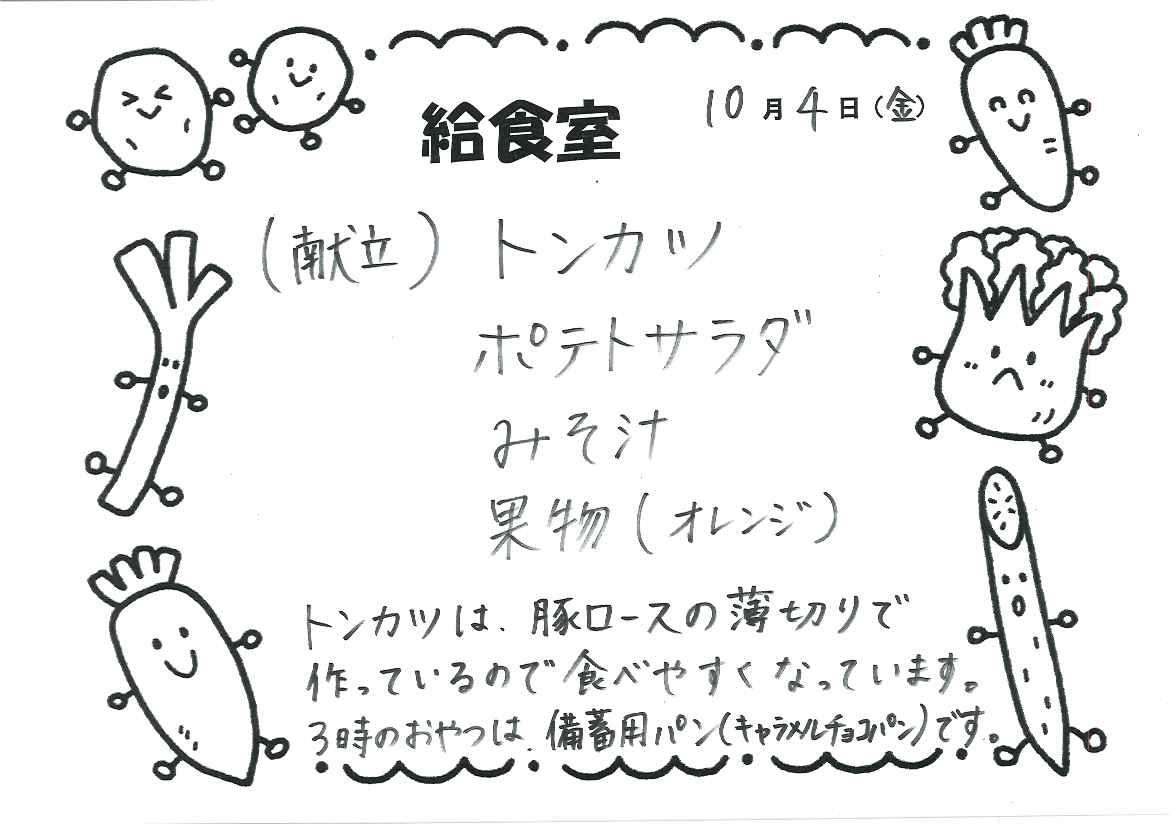 給食室
10月4日(金)
(献立) トンカツ
ポテトサラダ
みそ汁
果物(オレンジ)
トンカツは、豚ロースの薄切りで
作っているので食べやすくなっています。
3時のおやつは、備蓄用パン(キャラメルチョコパン)です。